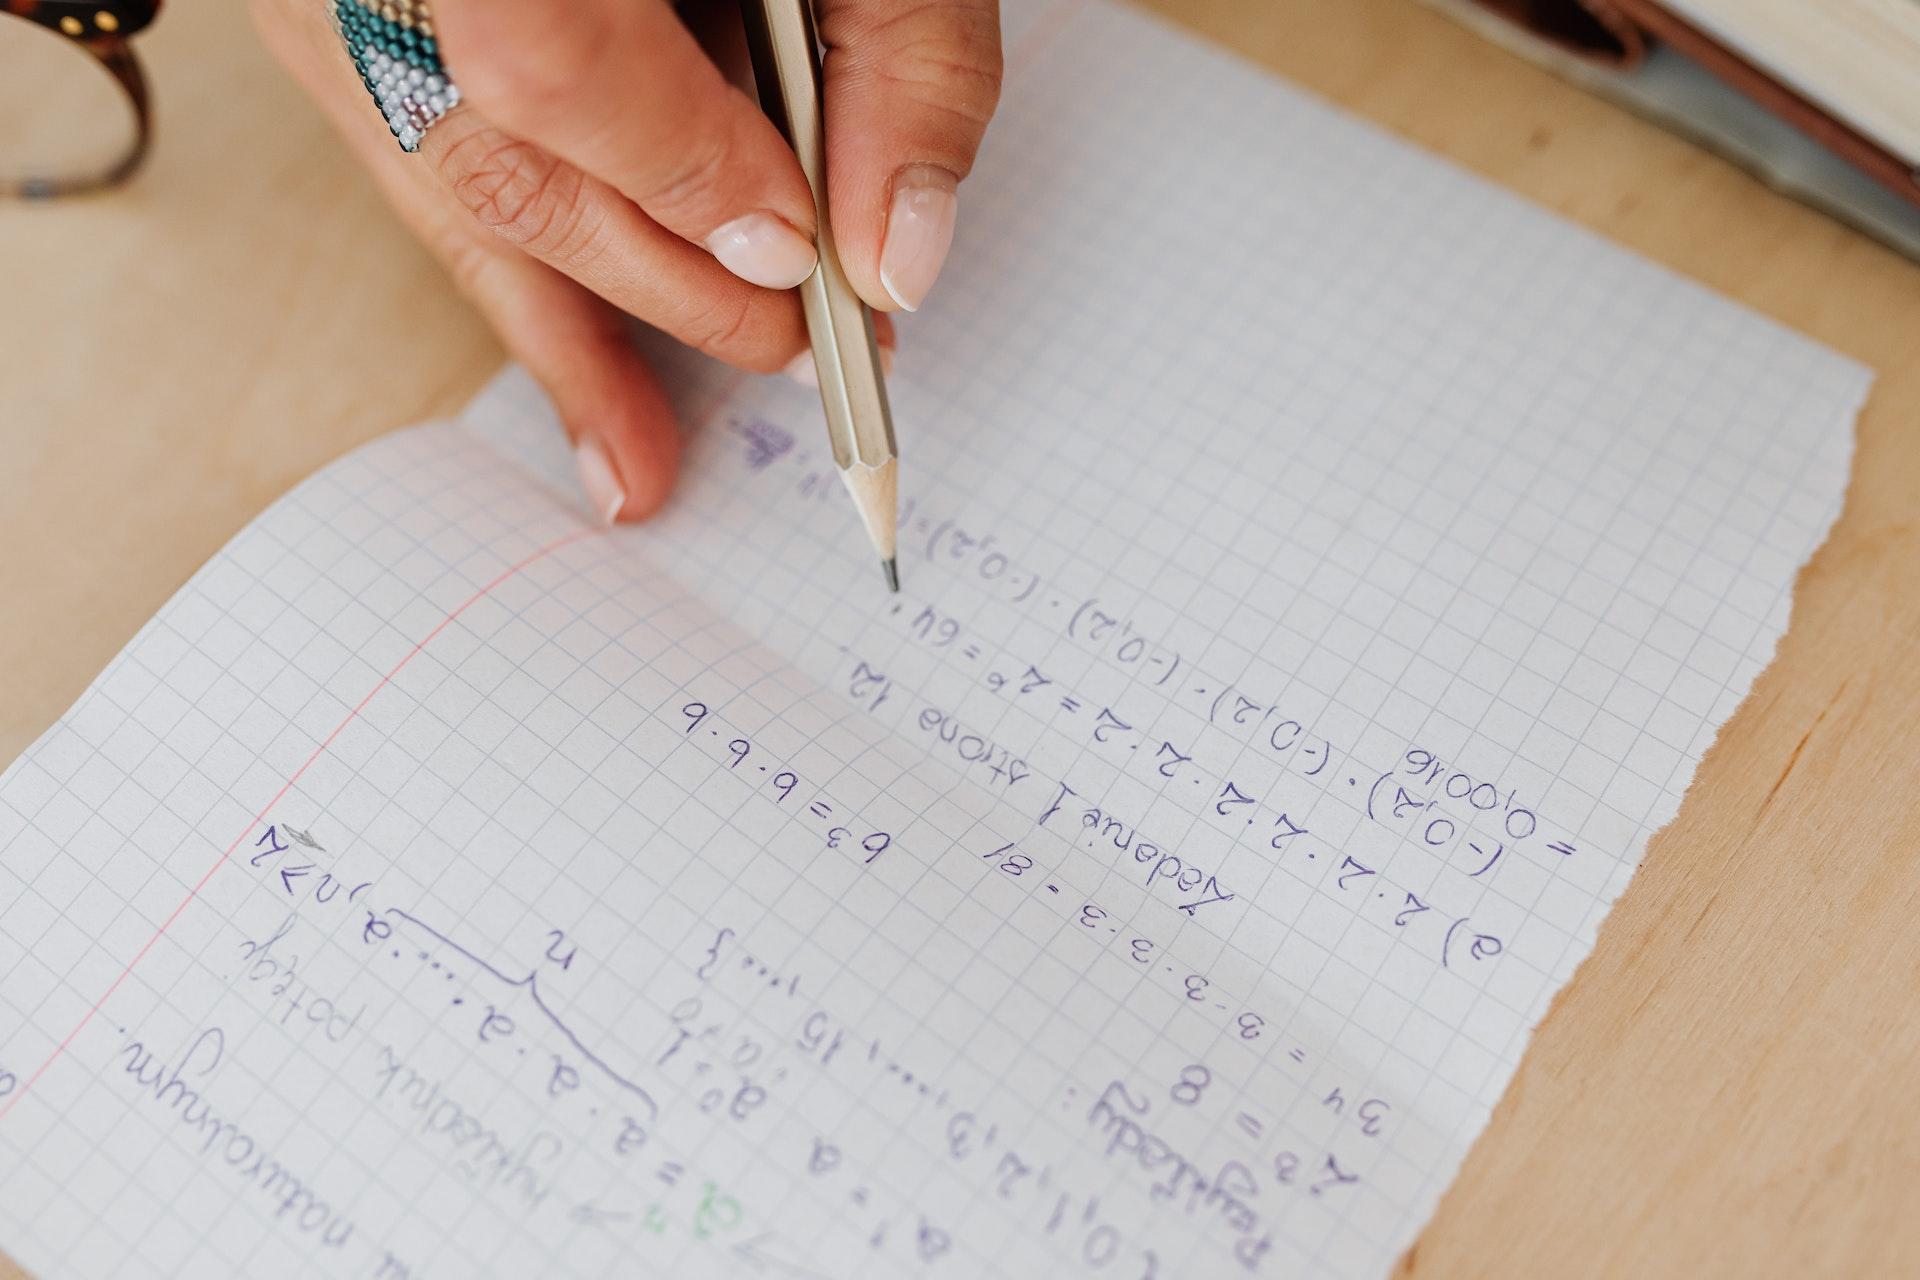 naturalnym.
→ wykładnik potęgi
aⁿ = a · a · a · .... · a, n ≥ 2
n
a¹ = a a⁰ = 1, a ≠ 0
{0, 1, 2, 3, ...., 15, ....}
Przykłady:
2³ = 8
3⁴ = 3 · 3 · 3 · 3 = 81 b³ = b · b · b
Zadanie 1 strona 12
a) 2 · 2 · 2 · 2 · 2 · 2 = 2⁶ = 64
(-0,2) · (-0,2) · (-0,2) · (-0,2) = (
= 0,0016